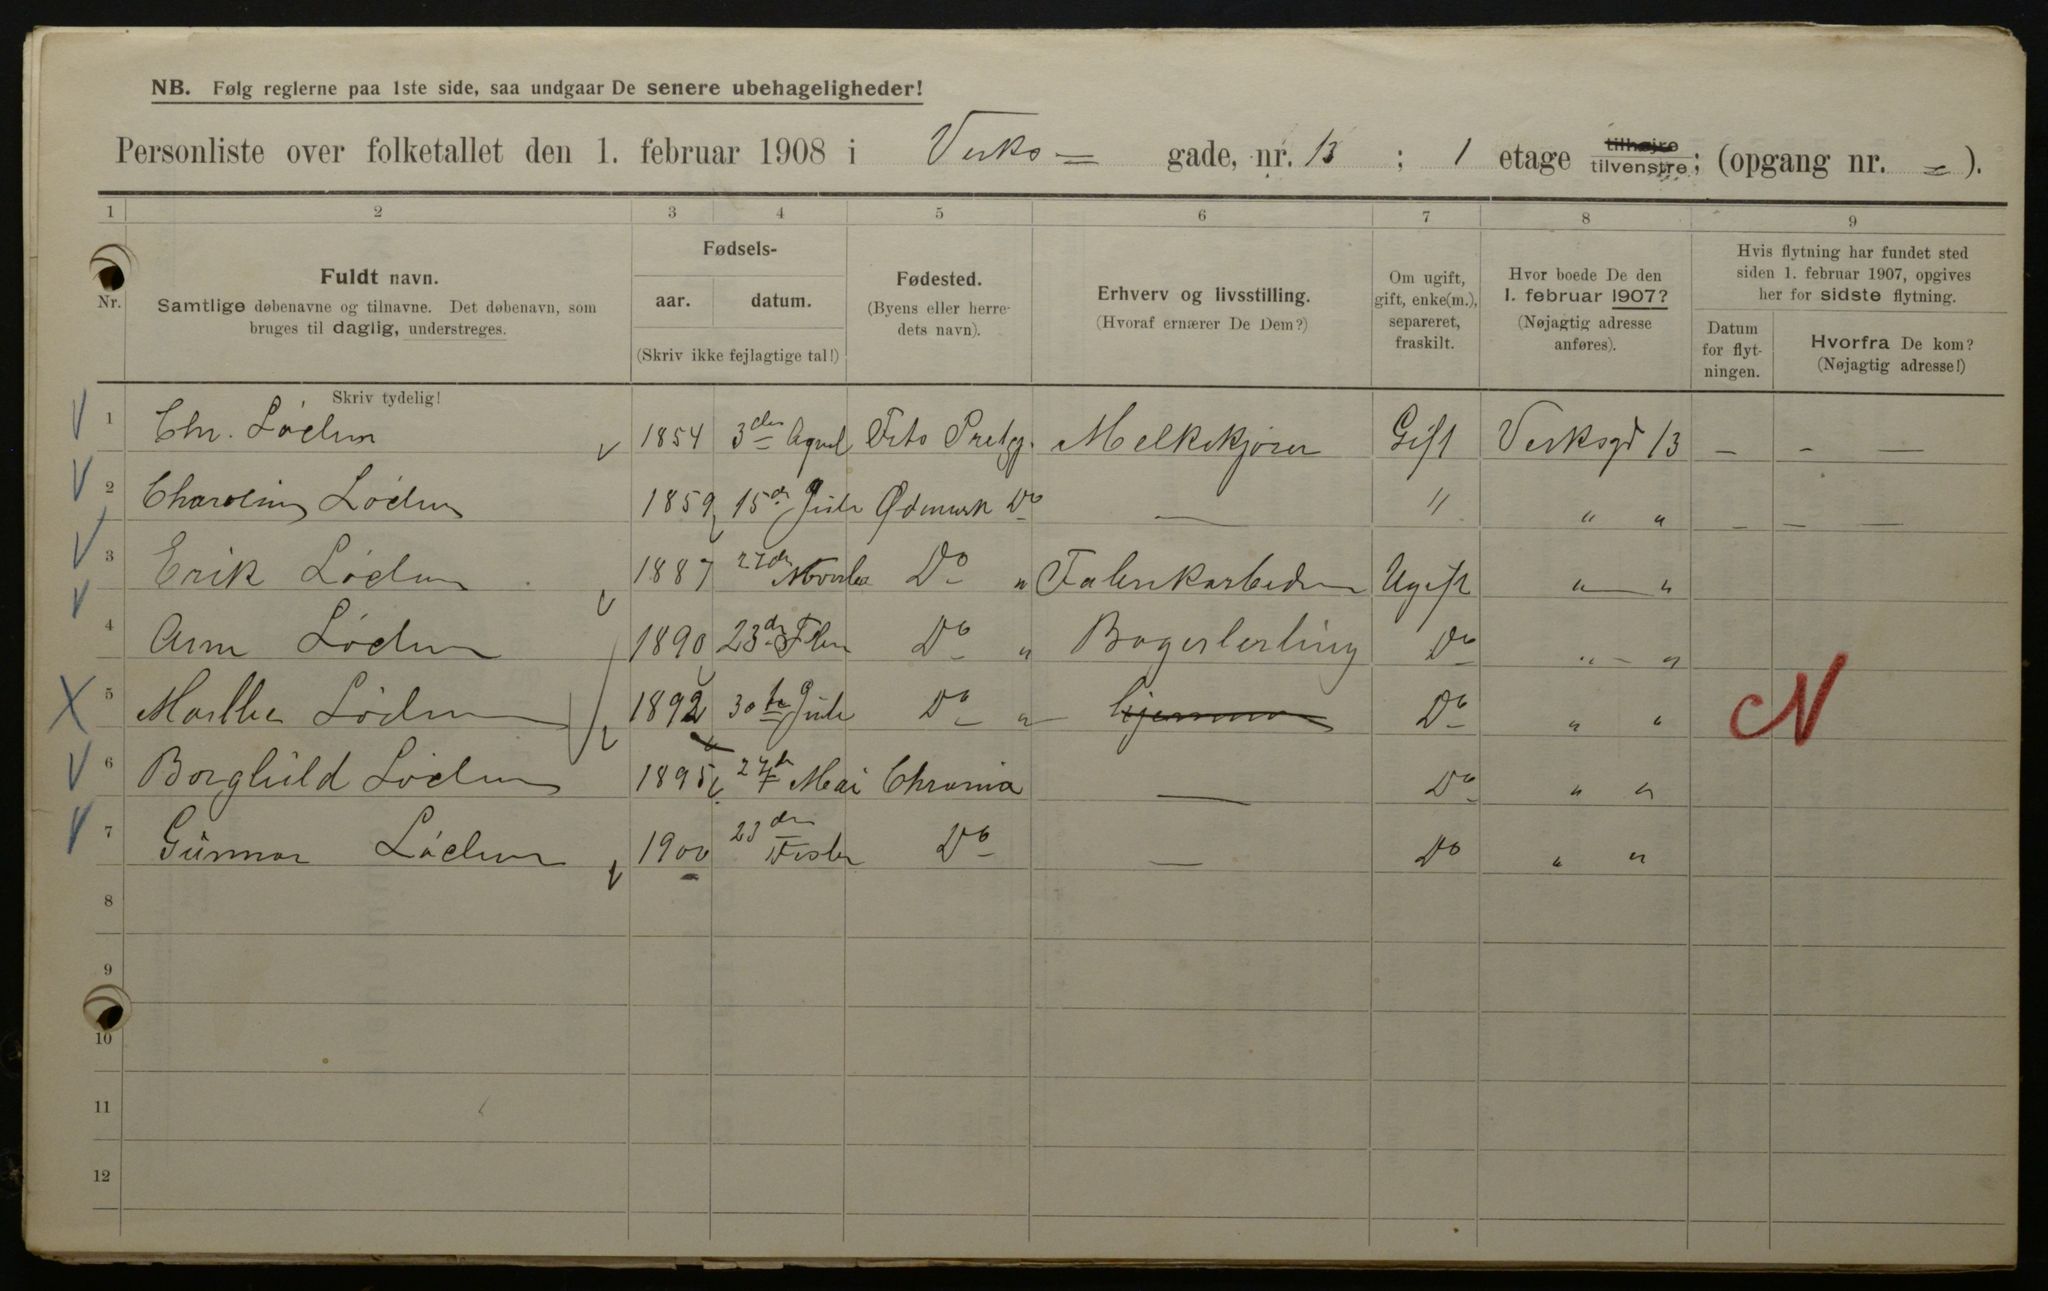 NB. Følg reglerne paa 1ste side, saa undgaar De senere ubehageligheder!
Personliste over folketallet den 1. februar 1908 i Verks= gade, nr. 13 ; 1 etage tilhøjre tilvenstre; (opgang nr. = ).
1 2 3 4 5 6 7 8 9
Nr.
Fuldt navn.
Samtlige døbenavne og tilnavne. Det døbenavn, som
bruges til daglig, understreges.
Skriv tydelig!
Fødsels-
aar. datum.
(Skriv ikke fejlagtige tal!)
Fødested.
(Byens eller herre-
dets navn).
Erhverv og livsstilling.
(Hvoraf ernærer De Dem?)
Om ugift,
gift, enke(m.),
separeret,
fraskilt.
Hvor boede De den
1. februar 1907?
(Nøjagtig adresse
anføres).
Hvis flytning har fundet sted
siden 1. februar 1907, opgives
her for sidste flytning.
Datum
for flyt-
ningen.
Hvorfra De kom?
(Nøjagtig adresse!)
1 Chr. Lødun 1854 3den April Melkekjører Gift Verksgd 13 – – —
2 Lødun 1859 15de Juli Ødemark Do — " " " – – —
3 Erik Lødun 1887 27de Do " Fabrikarbeder Ugift " — "
4 Lødun 1890 23de Do " Bagerlerling Do " – "
5 Lødun 1892 30te Juli Do " Do " " N
6 Borghild Lødun 1895 27de Mai Chrania — Do " "
7 Gunnar Lødun 1900 23de Do — Do " "
8
9
10
11
12